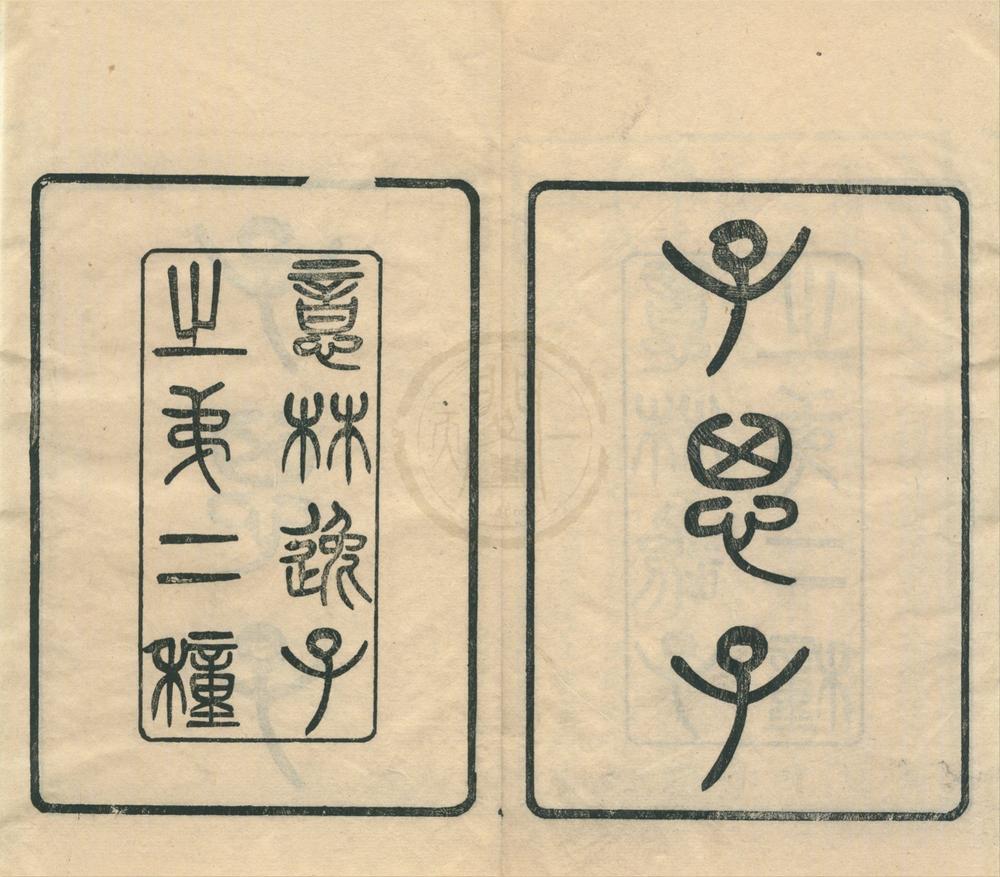 子思子
意林逸子
之弟二種